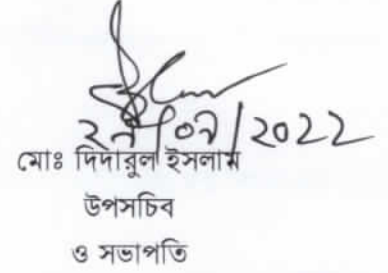 2022
মোঃ দিদারুল ইসলাম
উপসচিব
ও সভাপতি